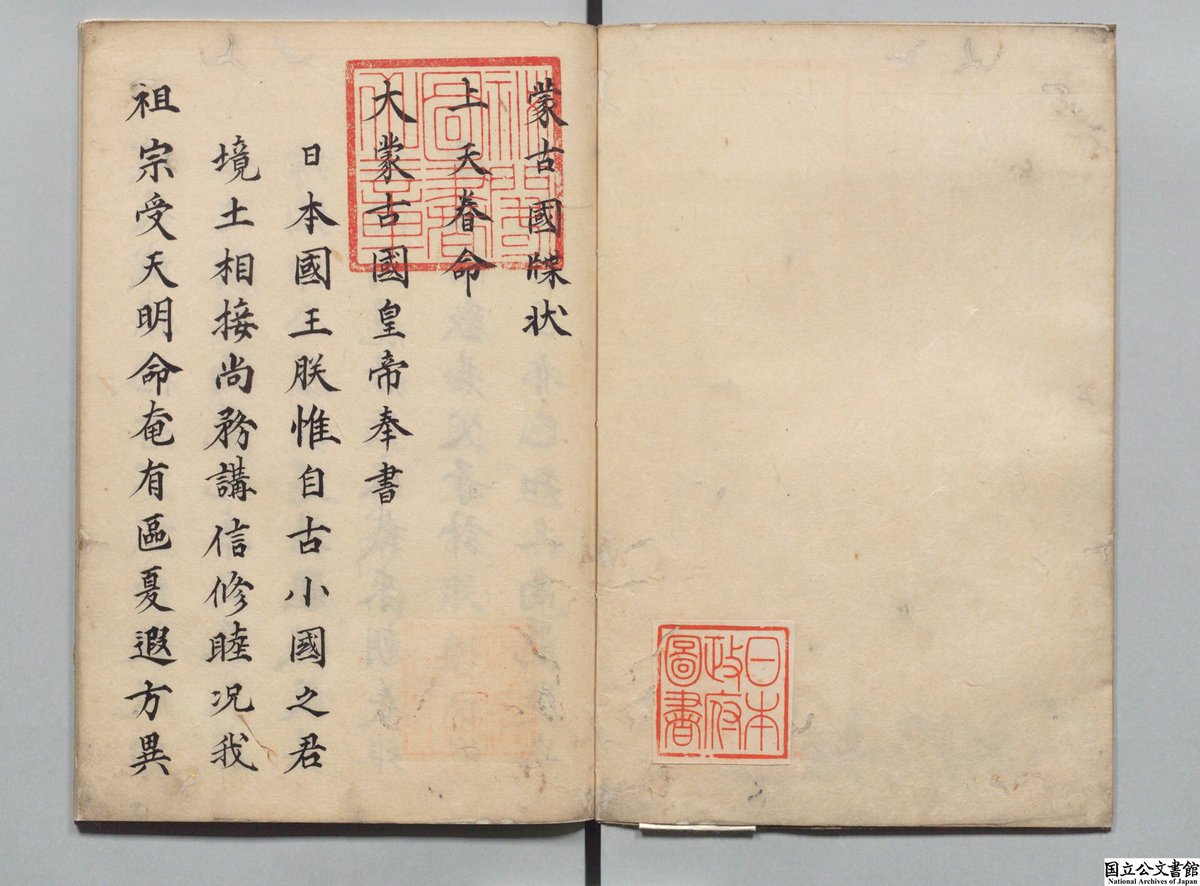 蒙古國牒状
上天眷命
大蒙古國皇帝奉書
日本國王朕惟自古小國之君
境土相接尚務講信修睦况我
祖宗受天明命奄有區夏遐方異
日本
政府
圖書
国立公文書館
National Archives of Japan